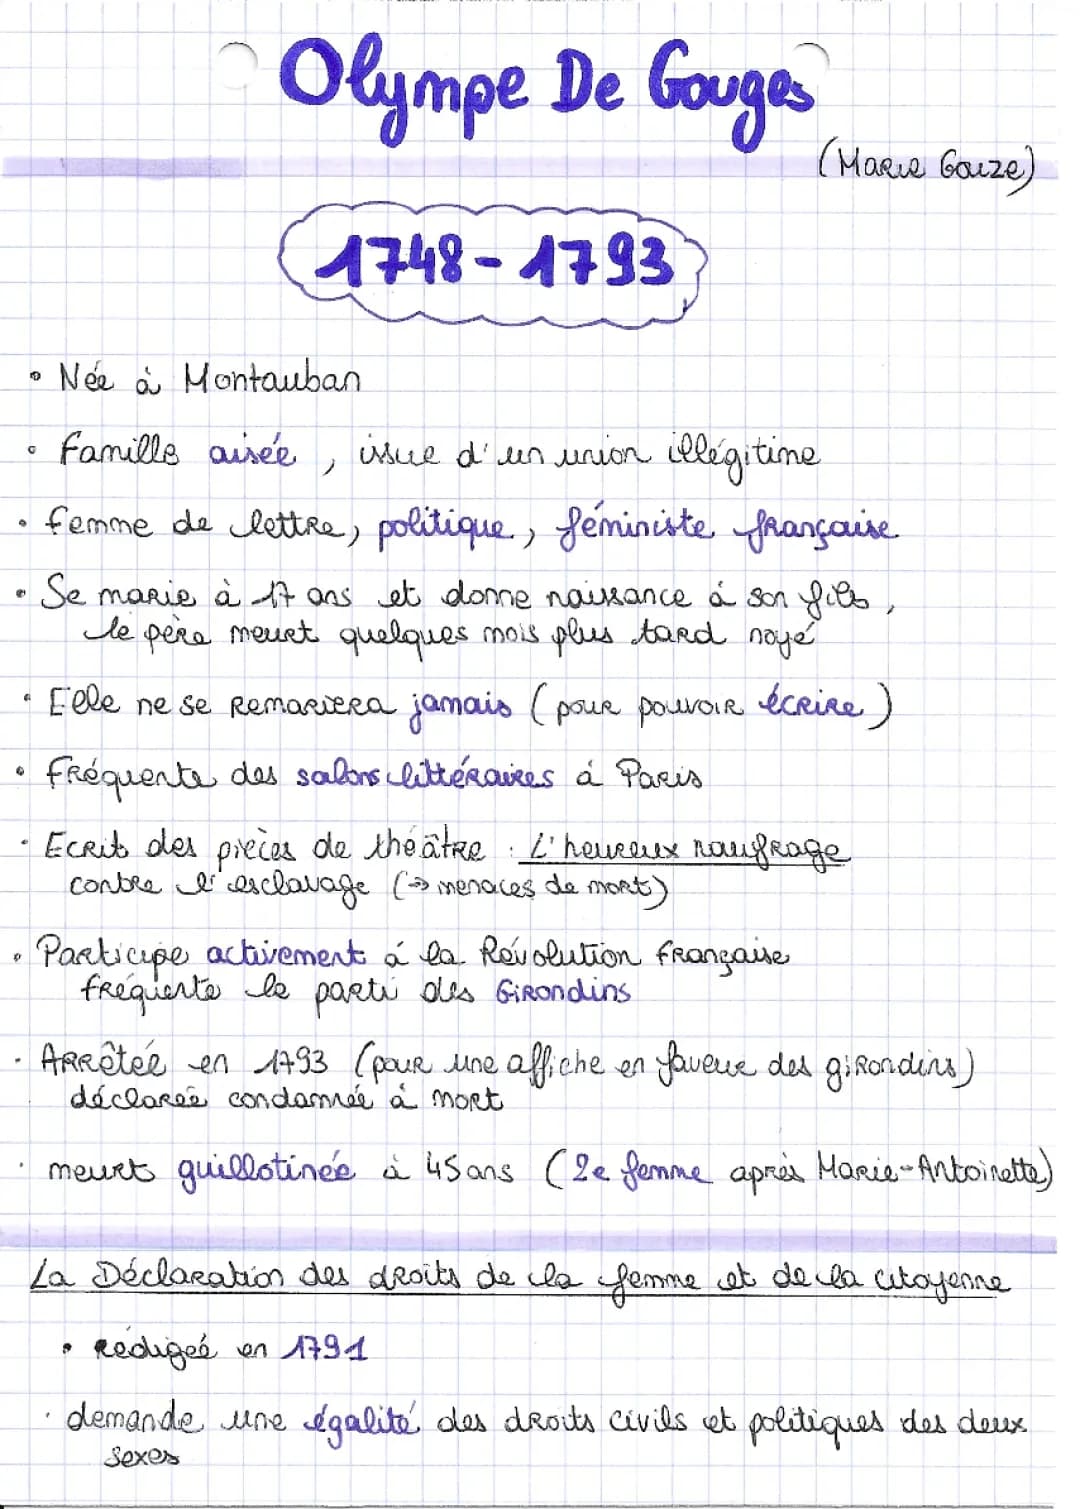 Olympe De Gouges
(Marie Gouze)
1748 - 1793
• Née à Montauban
• Famille aisée, issue d'un union illégitime
• femme de lettre, politique, féministe française
• Se marie à 17 ans et donne naissance à son fils,
le père meurt quelques mois plus tard noyé
• Elle ne se remariera jamais (pour pouvoir écrire)
• Fréquente des salons littéraires à Paris
• Ecrit des pièces de théâtre : L'heureux naufrage
contre l'esclavage (→ menaces de mort)
• Participe activement à la Révolution Française
fréquente le parti des Girondins
• Arrêtée en 1793 (pour une affiche en faveur des girondins)
déclarée condamnée à mort
• meurts guillotinée à 45 ans (2e femme après Marie-Antoinette)
La Déclaration des droits de la femme et de la citoyenne
• rédigeé en 1791
• demande une égalité des droits civils et politiques des deux
sexes